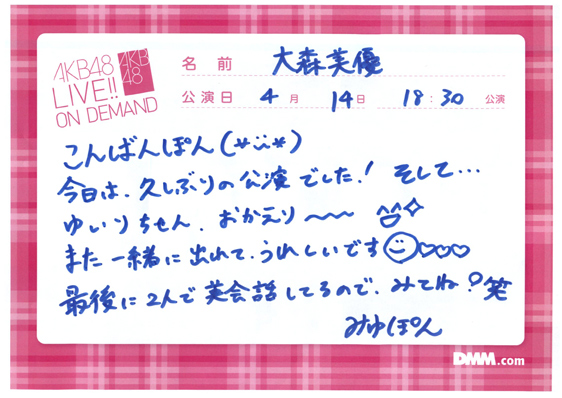 AKB48
LIVE!!
ON DEMAND
AKB
48
名前 大森美優
公演日 4月 14日 18:30 公演
こんばんぽん(*¨*)
今日は、久しぶりの公演でした！ そして…
ゆいりちゃん、おかえり〜〜
また一緒に出れて、うれしいです♡♡♡
最後に2人で英会話してるので、みてね？笑
みゆぽん
DMM.com